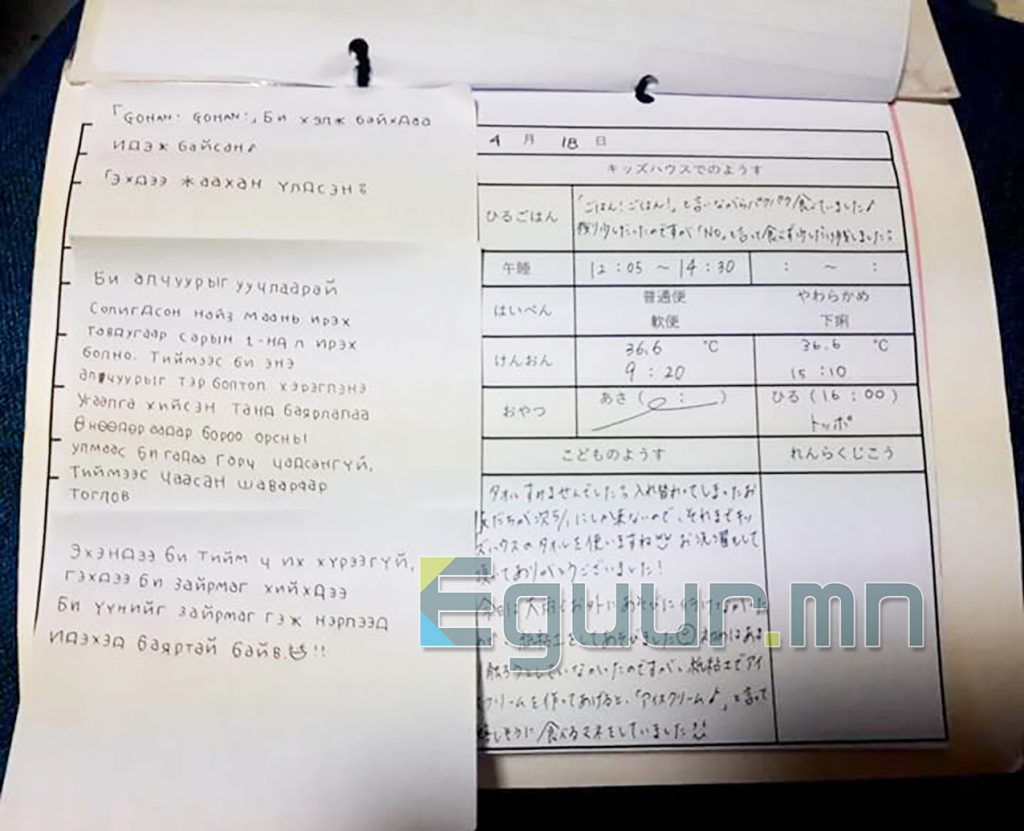 「GOHAN! GOHAN!」 Би хэлж байхдаа
идэж байсан♪
Гэхдээ жаахан үлдсэн
Би алчуурыг уучлаарай
Солигдсон найз маань ирэх
тавдугаар сарын 1-нд л ирэх
болно. Тиймээс би энэ
алчуурыг тэр болтол хэрэглэнэ
Угаалга хийсэн танд баярлалаа
Өнөөдөр аадар бороо орсны
улмаас би гадаа гарч чадсангүй,
Тиймээс цаасан шавараар
тоглов
Эхэндээ би тийм ч их хүрээгүй,
гэхдээ би зайрмаг хийхдээ
Би үүнийг зайрмаг гэж нэрлээд
идэхэд баяртай байв.!!
4 月 18 日
キッズハウスでのようす
ひるごはん
「ごはん!ごはん!」と言いながらパクパク食べていました♪
残り少しだったのですが「NO」と言って食べず少しだけ残しました
午睡 12:05 ~ 14:30 : ~ :
はいべん 普通便 やわらかめ
軟便 下痢
けんおん 36.6 ℃ 36.6 ℃
9:20 15:10
おやつ あさ ( : ) ひる (16:00)
トッポ
こどものようす れんらくじこう
タオルすみませんでした 入れ替わってしまったお
友だちが次5/1にしか来ないので、それまでキッ
ズハウスのタオルを使いますね お洗濯もして
頂いてありがとうございました!
今日は大雨でお外にあそびに行けなかった
ので、紙粘土をしてあそびました 初めはあま
り触ろうとしていなかったのですが、紙粘土でアイ
スクリームを作ってあげると、「アイスクリーム♪」と言って
嬉しそうに食べるマネをしていました
Eguur.mn